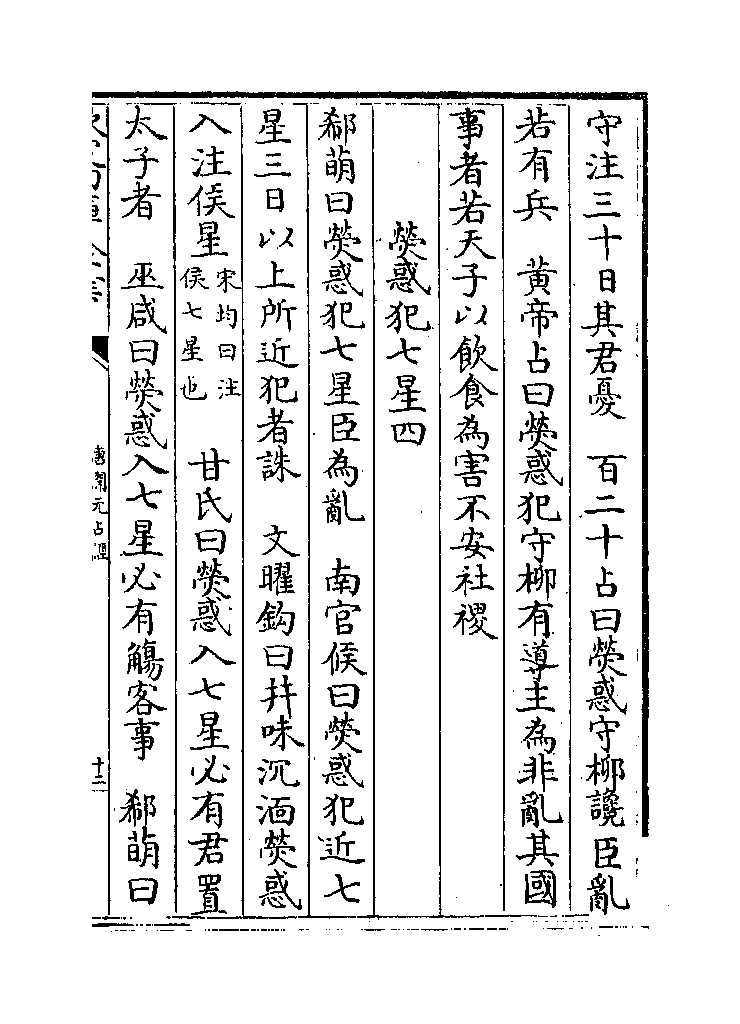 守注三十日其君憂　百二十占曰熒惑守柳讒臣亂
若有兵　黃帝占曰熒惑犯守柳有導主為非亂其國
事者若天子以飲食為害不安社稷
熒惑犯七星四
郗萌曰熒惑犯七星臣為亂　南官候曰熒惑犯近七
星三日以上所近犯者誅　文曜鈎曰并味沉湎熒惑
入注侯星宋均曰注侯七星也　甘氏曰熒惑入七星必有君置
太子者　巫咸曰熒惑入七星必有觴客事　郗萌曰
唐開元占經
十三